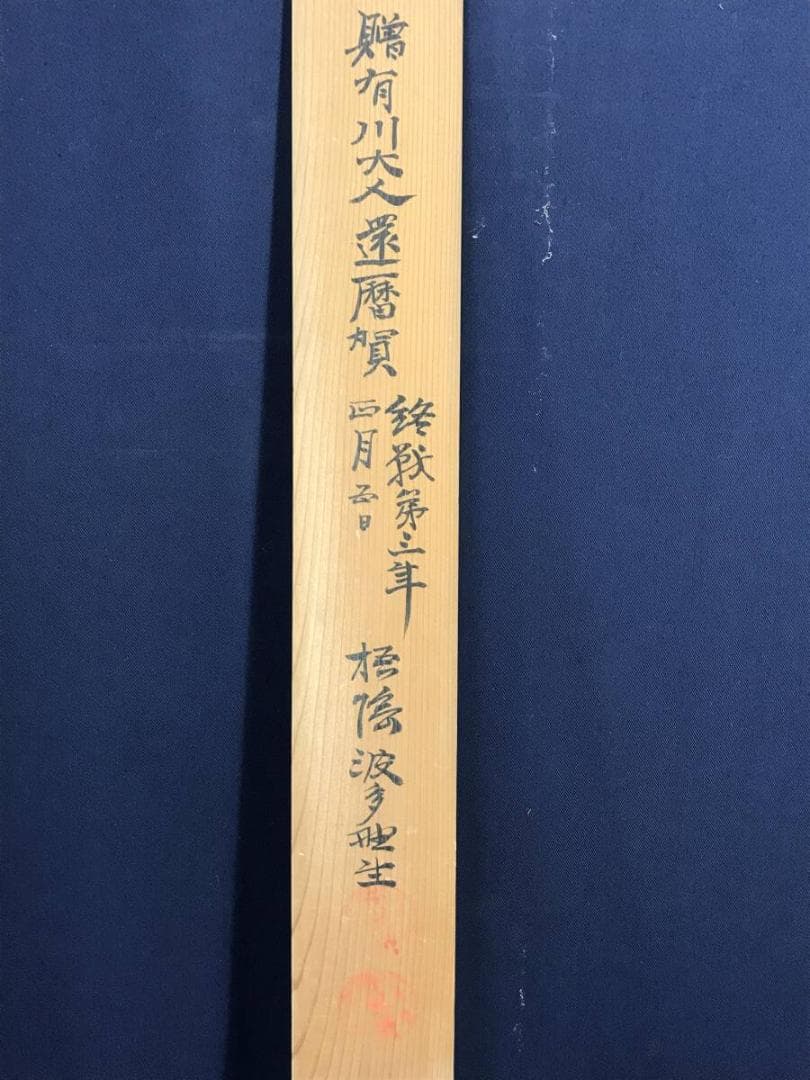 贈有川大人還暦賀
終戦第三年
四月五日
梧陰波多野生